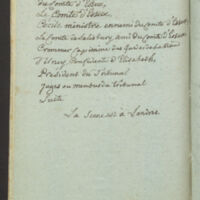 du Comte d'Essex,
Le Comte d'Essex,
Cecile ministre ennemi du Comte d'Essex
Le Comte de Salisbury, ami du Comte d'Essex
Crommer Capitaine des Gardes
Confident d'Elisabeth,
Président du Tribunal
Juges ou membres du tribunal
Suite
La Scene est à Londres